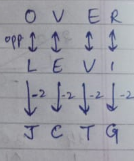 O V E R
opp ↕ ↕ ↕ ↕
L E V I
↓-2 ↓-2 ↓-2 ↓-2
J C T G